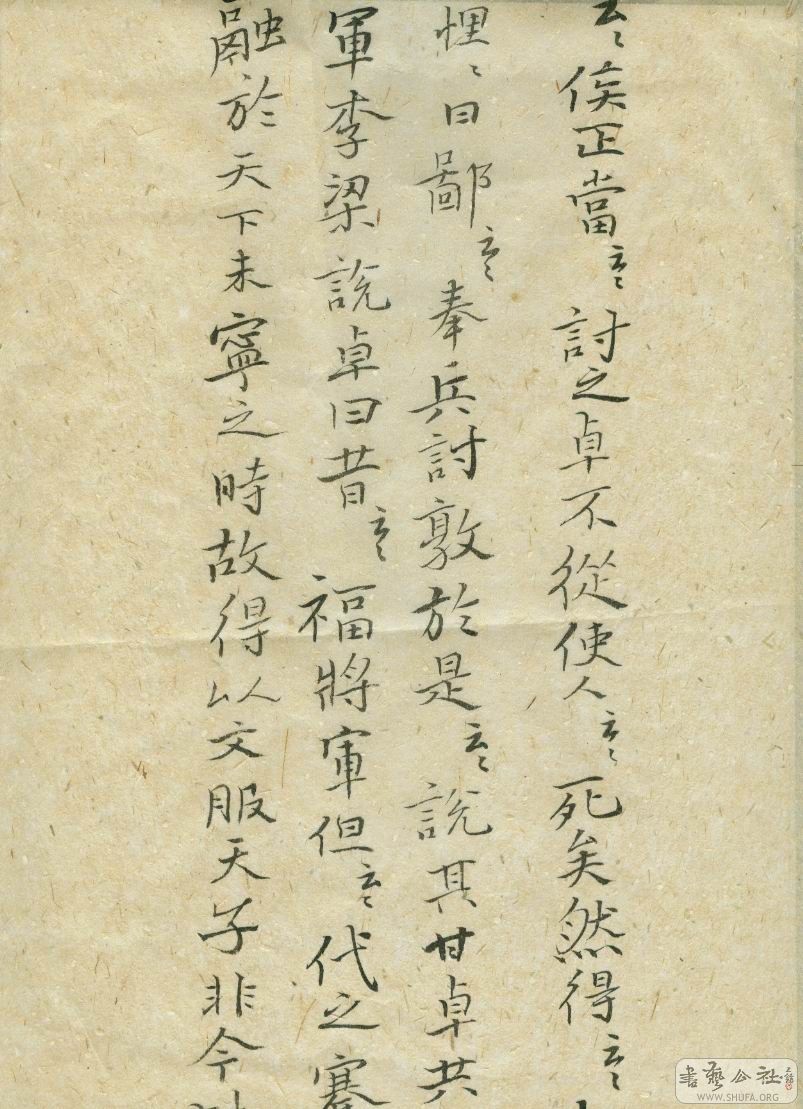 云〻侯正當云〻討之卓不從使人云〻死矣然得云〻
悝〻曰鄙云〻奉兵討敦於是云〻說其甘卓共
軍李梁說卓曰昔云〻福將軍但云〻代之
融於天下未寧之時故得以文服天子非今
書藝公社
WWW.SHUFA.ORG